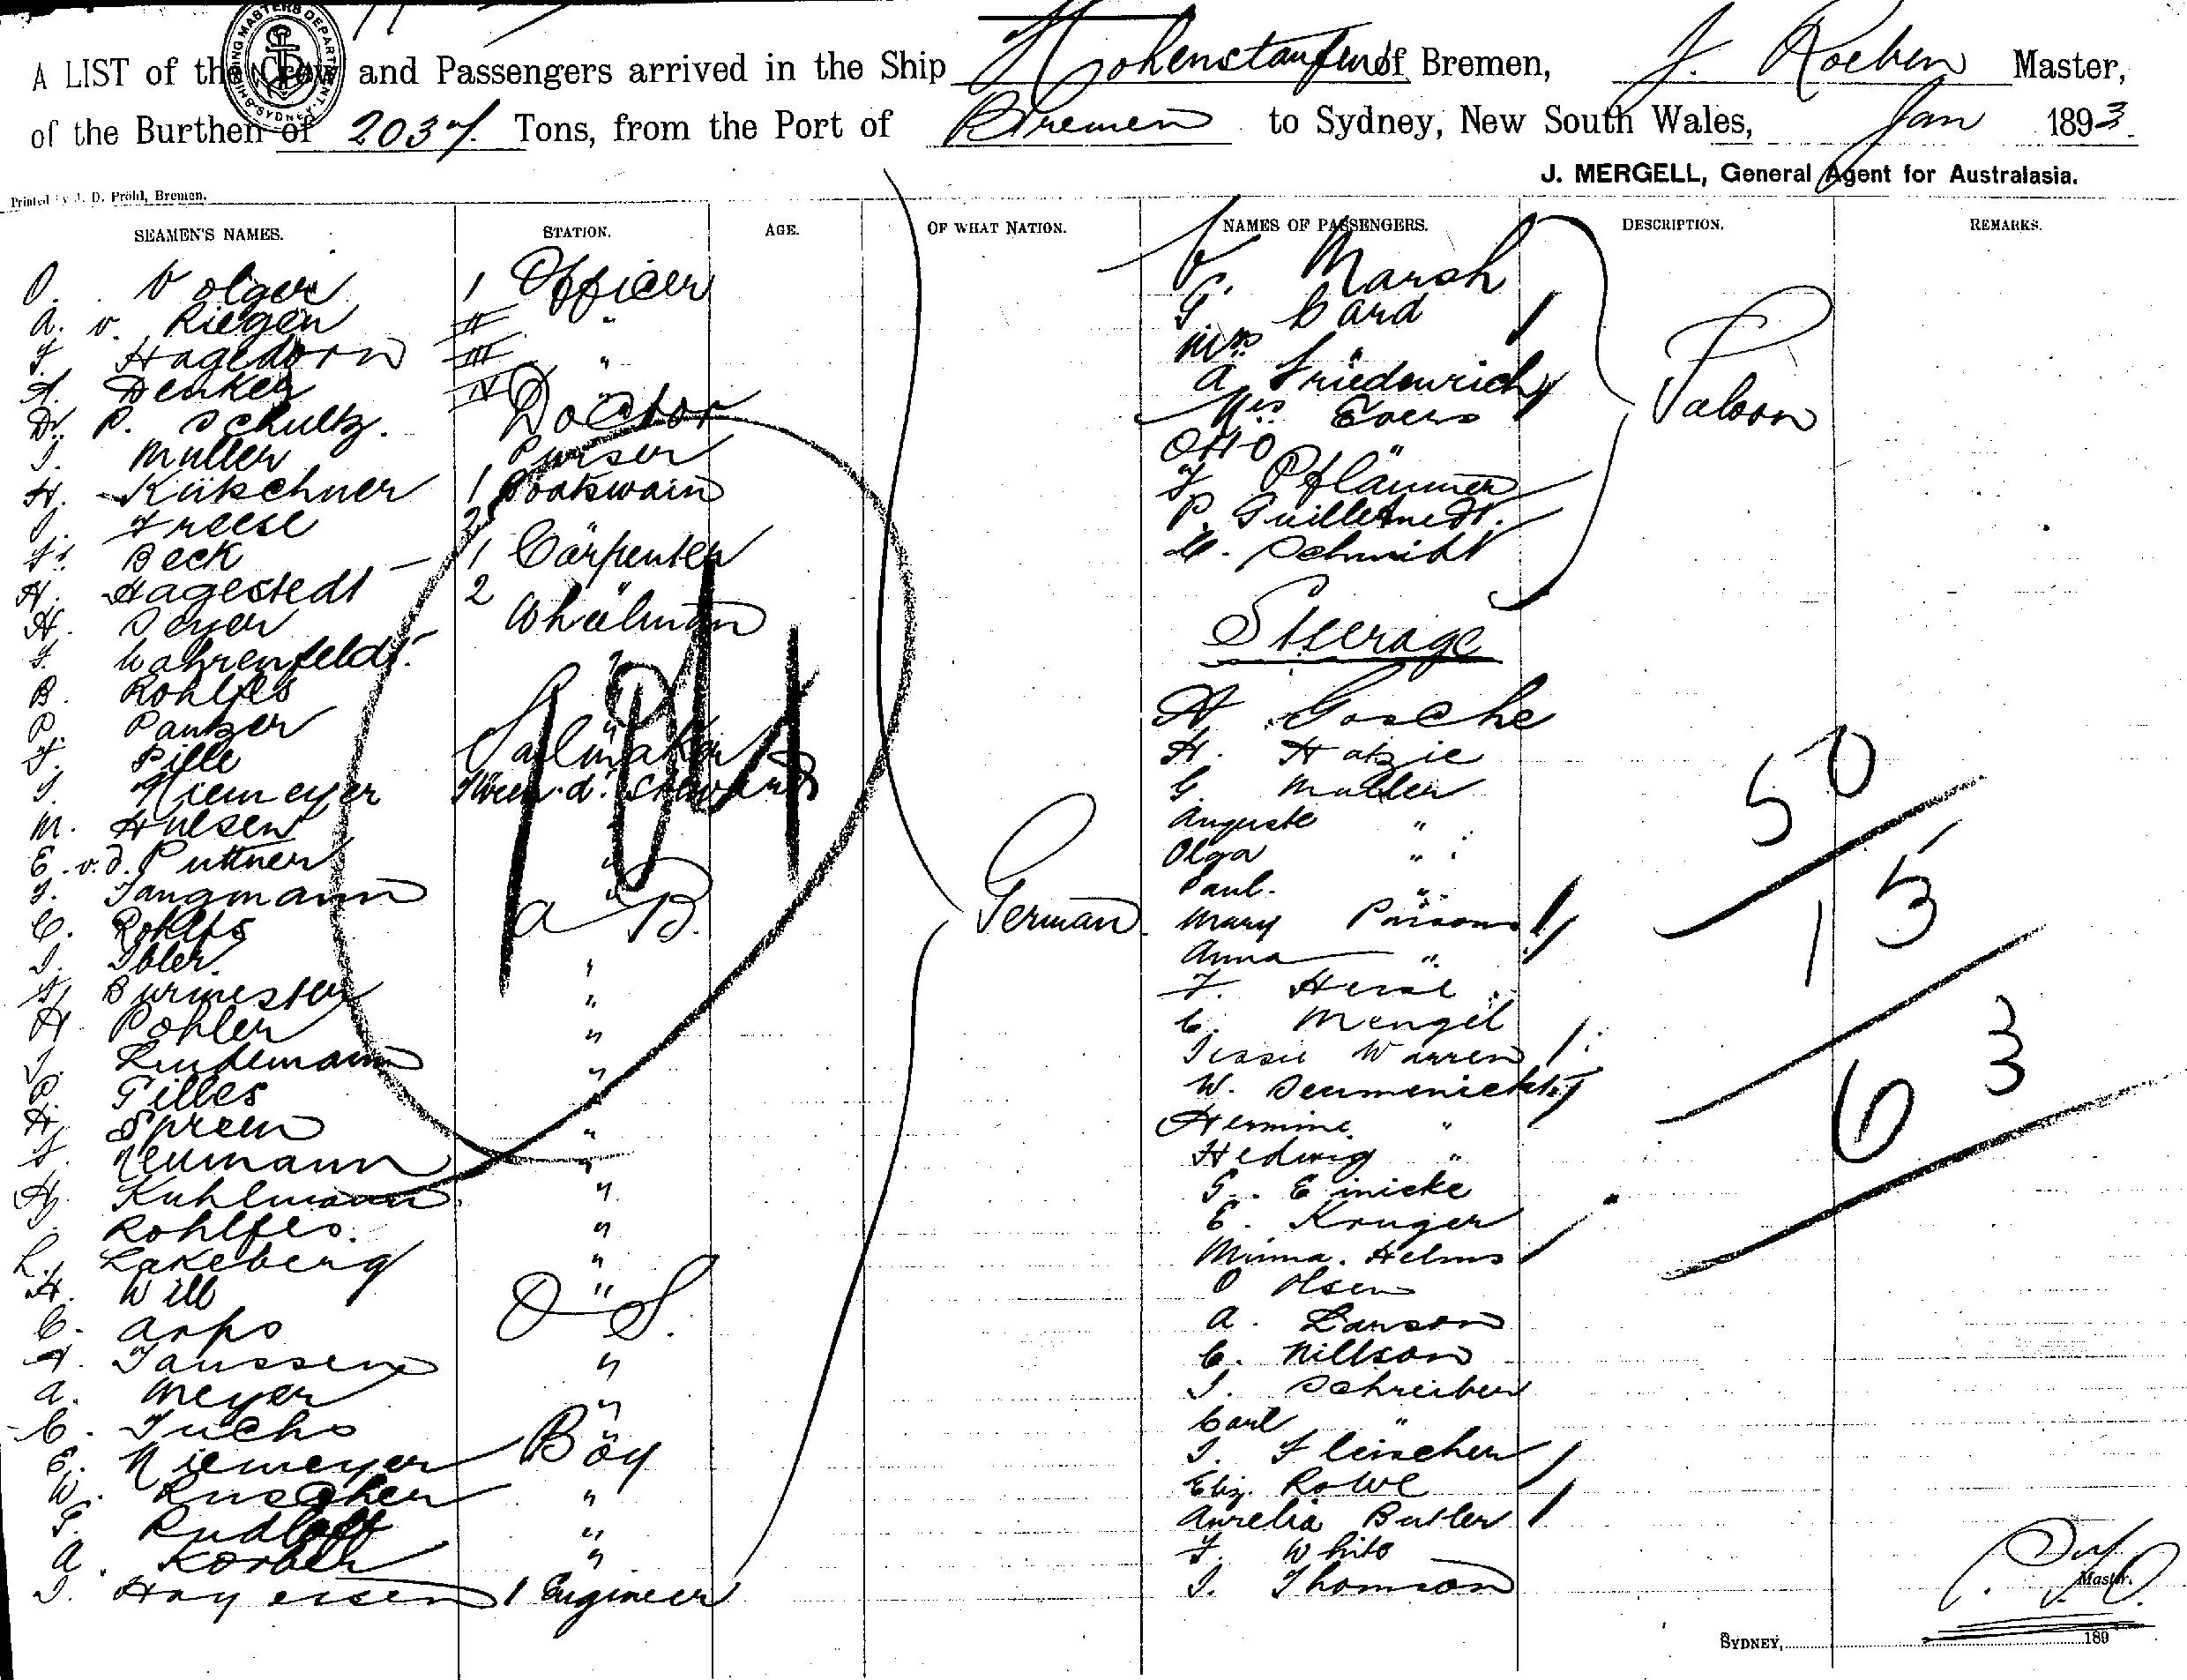 SHIPPING MASTERS DEPARTMENT. SYDNEY
A LIST of the Crew and Passengers arrived in the Ship Hohenstaufen of Bremen, J. Roeben Master,
of the Burthen of 2037 Tons, from the Port of Bremen to Sydney, New South Wales, Jan 1893
J. MERGELL, General Agent for Australasia.
Printed by J. D. Pröhl, Bremen.
SEAMEN'S NAMES. STATION. AGE. OF WHAT NATION. NAMES OF PASSENGERS. DESCRIPTION. REMARKS.
O. Volger 1 Officer
A. v. Riegen II "
J. Hagedorn III "
A. Denker IV "
Dr. P. Schultz. Doctor
J. Muller Purser
H. Kutschner 1 Boatswain
O. Freese 2 "
Fr. Beck 1 Carpenter
H. Hagestedt 2 "
H. Seyer Wheelman
J. Wahrenfeldt. "
B. Rohlfes "
P. Panzer "
F. Pille Sailmaker
J. Niemeyer Steward
M. Huesen "
E. v. d. Puttner "
J. Jangmann "
C. Rohlfs A B.
J. Ibler. "
H. Burmester "
H. Pohler "
J. Lindemann "
P. Gilles "
H. Spreen "
F. Neumann "
H. Kuhlmann "
J. Rohlfes. "
L. Lakeberg "
H. Will "
C. Arps O S.
H. Janssen "
A. Meyer "
C. Fuchs "
E. Niemeyer Boy
W. Ruscher "
G. Rudloff "
A. Korber "
J. Hayessen 1 Engineer
101
German
C. Marsh
G. Card
Mrs "
A Friedenrich
Mrs Evers
Otto "
J Pflaumer
P. Guilletmedt.
C. Schmidt
Saloon
Steerage
A. Gosche
H. Hatzie
G. Muller
Auguste "
Olga "
Paul. "
Mary Parsons
Anna "
F. Herse
C. Mengel
Jessie Warren
W. Seumenicht
Hermine "
Hedwig "
G. Einicke
E. Kruger
Minna. Helms
O Olsen
A. Lawson
C. Nillson
J. Schreiber
Carl "
J. Fleischer
Eliz. Rowe
Aurelia Butler
F. White
J. Thomson
50
15
63
Master.
SYDNEY, 189